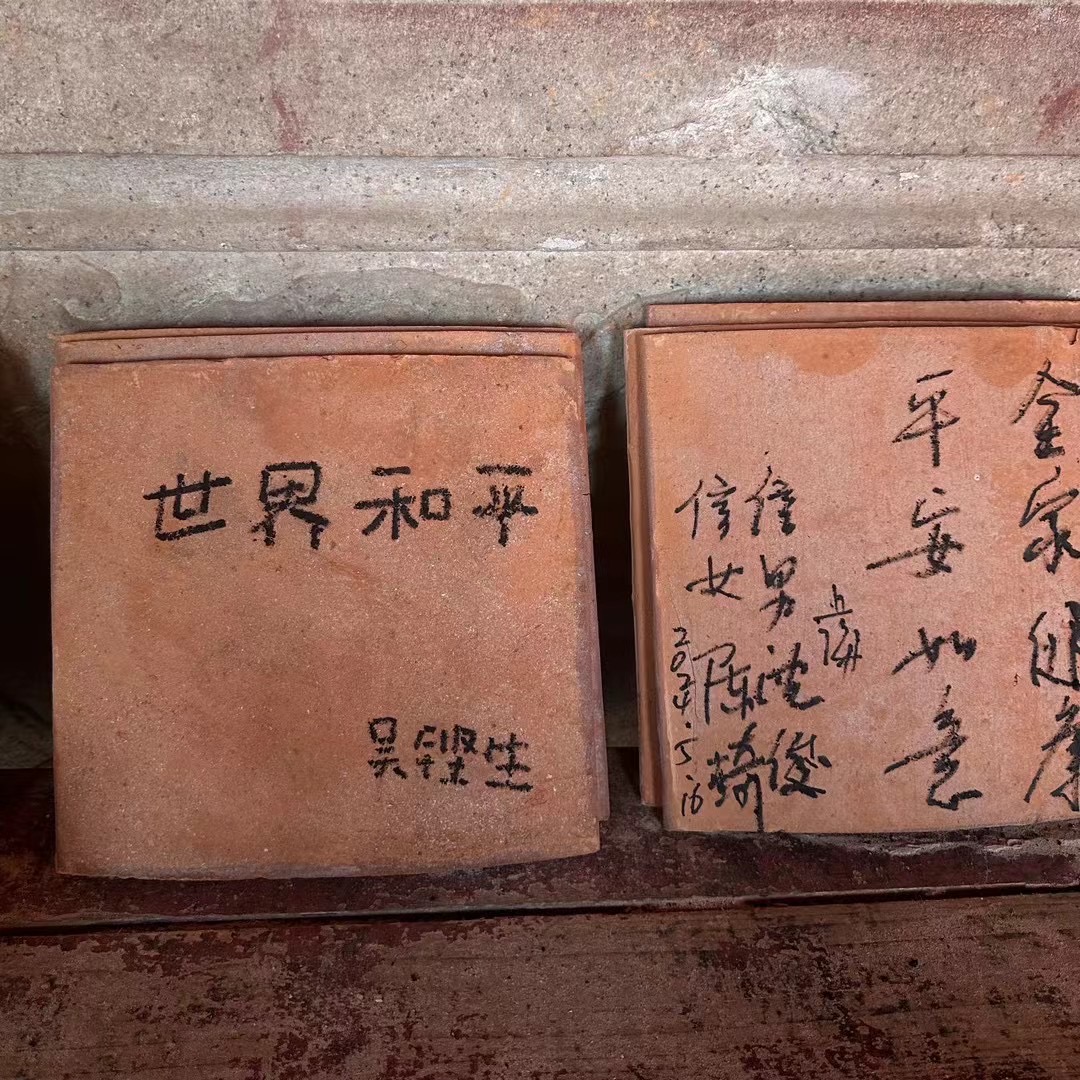 世界和平
吴 生
全家健康
平安如意
上海
信男 俊
信女 陈琦
2024.5.16